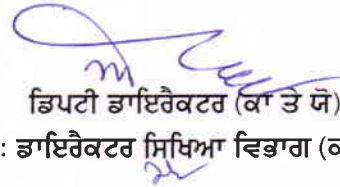 ਡਿਪਟੀ ਡਾਇਰੈਕਟਰ (ਕਾ ਤੇ ਯੋ)
: ਡਾਇਰੈਕਟਰ ਸਿਖਿਆ ਵਿਭਾਗ (ਕ